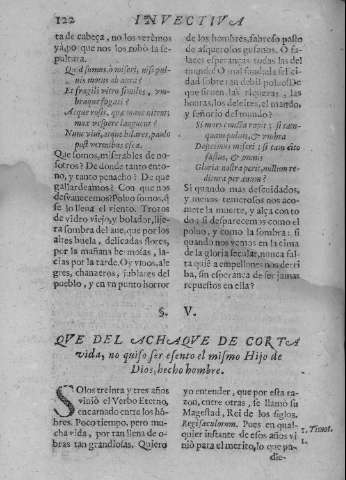 122 INVECTIVA
ta de cabeça, no los verèmos
ya, po que nos los robò la se-
pultura.
Quid sumus, ò miseri, nisi pul-
nis motus ab aura?
Et fragili vitro similes, vm-
braque fugaci?
Acque rosis, quæ mane nitent;
mox vespere languent?
Nunc vivi, atque hilares, paulò
post vermibus esca.
Que somos, miserables de no-
sotros? De donde tanto ento-
no, y tanto penacho? De que
gallardeamos? Con que nos
desvanecemos? Polvo somos, q̃
se lo lleva el viento. Trozos
de vidro viejo, y bolador, lige-
ra sombra del aue, que por los
altes buela, delicadas flores,
por la mañana hermosas, la-
cias por la tarde. Oy viuos, ale
gres, chanceros, fablares del
pueblo, y en vn punto horror
de los hombres, sabroso pasto
de asquerosos gusanos. O fa-
laces esperanças todas las del
mundo! O mal fundada feli ci-
dad sobre tan debil poluo! De
que siruen las riquezas, las
honras, los deleites, el mando,
y señorio del mundo?
Si mors cuncta rapit; si tam-
quam puluis, & vmbra
Desicimus miseri; si tam citò
fastus, & omnis
Gloria nostra perit, nullum re-
ditura per æuum?
Si quando mas descuidados,
y menos temerosos nos aco-
mete la muerte, y alça con to
do; si desparecemos como el
poluo, y como la sombra; si
quando nos vemos en la cima
de la gloria secular, nunca fal-
ta quiẽ a empellones nos derri
ba, sin esperança de ser jamas
repuestos en ella?
§. V.
QVE DEL ACHAQVE DE CORTA
vida, no quiso ser esento el mismo Hijo de
Dios, hecho hombre.
SOlos treinta y tres años
viuiò el Verbo Eterno,
encarnado entre los hõ-
bres. Poco tiempo, pero mu-
cha vida, por tan llena de o-
bras tan grandiosas. Quiero
yo entender, que por esta ra-
zon, entre otras, se llamò su
Magestad, Rei de los siglos.
Regi sæculorum. Pues en qual-
quier instante de esos años vi
niò para el merito, lo que pu-
die-
1. Timot.
1.